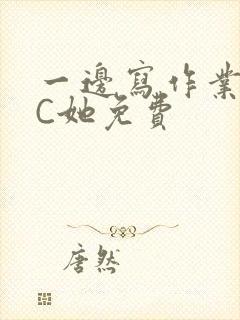 一邊寫作業
C她免費
唐然